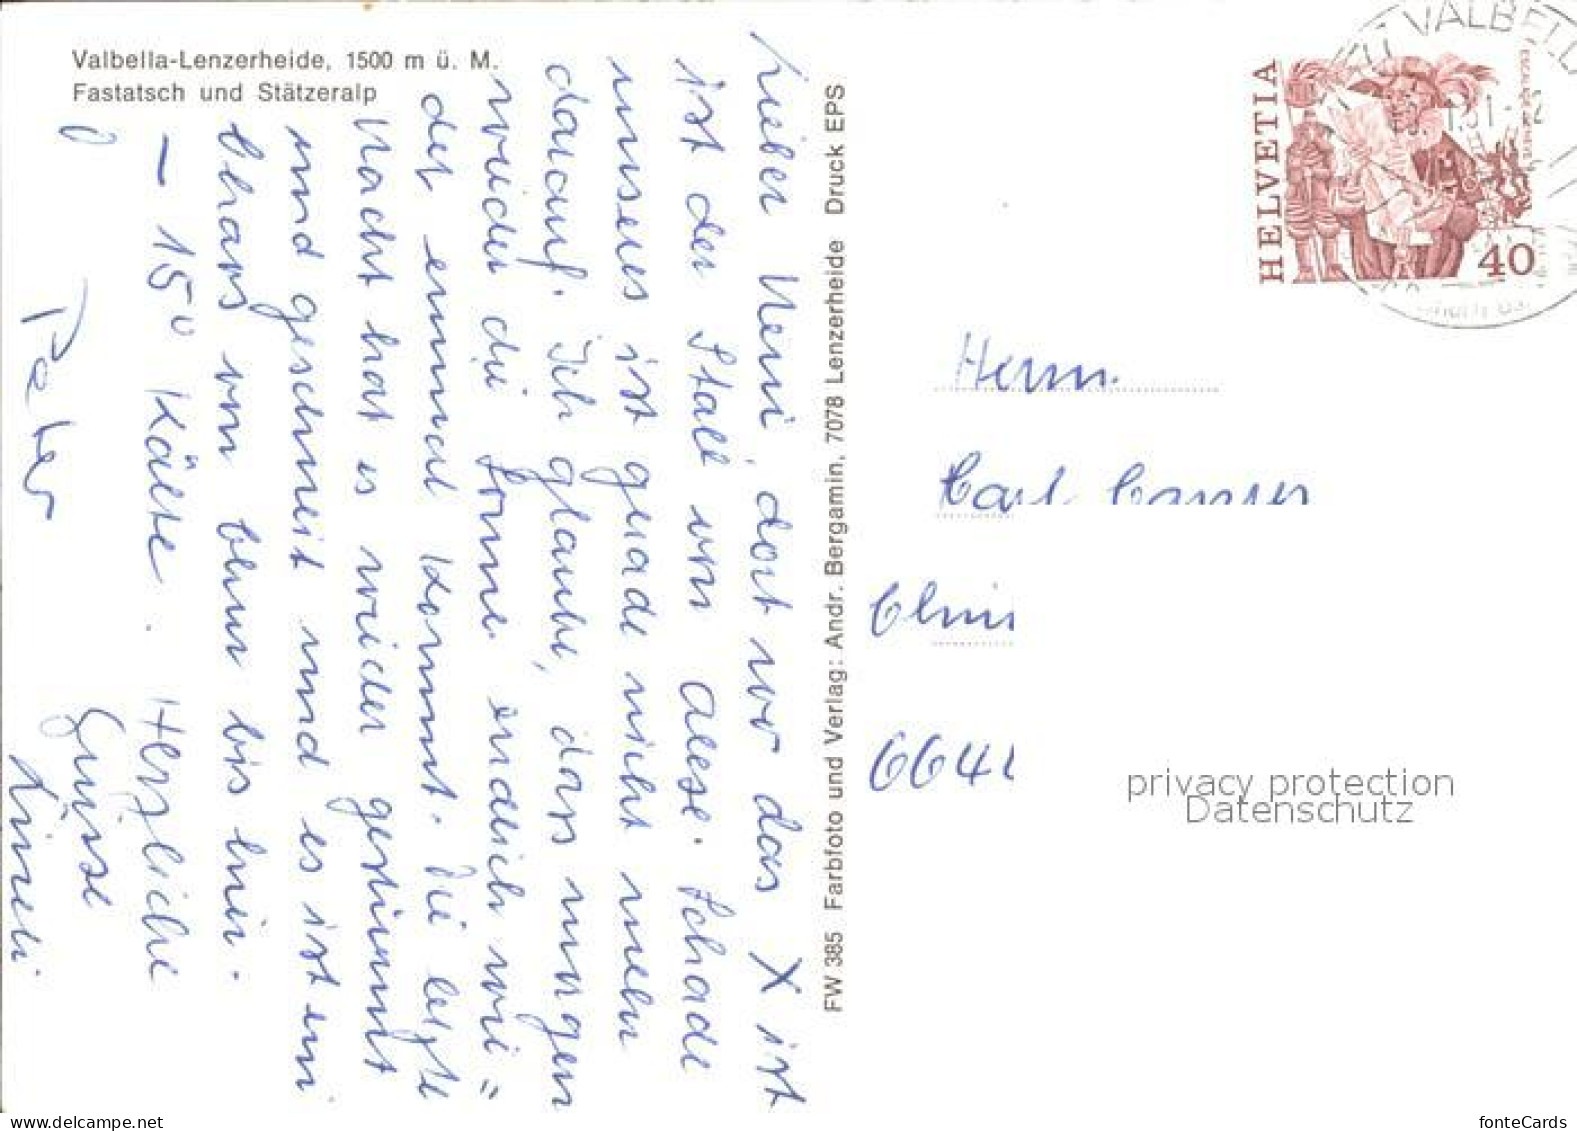 Valbella-Lenzerheide, 1500 m ü. M.
Fastatsch und Stätzeralp
Lieber Neni, dort wo das X ist
ist der Stall von Alese. Schade
unseres ist gerade nicht mehr
darauf. Ich glaube, dass morgen
wieder die Sonne endlich wie=
der einmal kommt. Die letzte
Nacht hat es wieder gestürmt
und geschneit und es ist ein
Chaos von Chur bis hier.
- 15° Kälte. Herzliche
Grüsse
Peter
FW 385 Farbfoto und Verlag: Andr. Bergamin, 7078 Lenzerheide Druck EPS
HELVETIA
40
VALBELLA
Herrn
Carl
664
privacy protection
Datenschutz
fonteCards